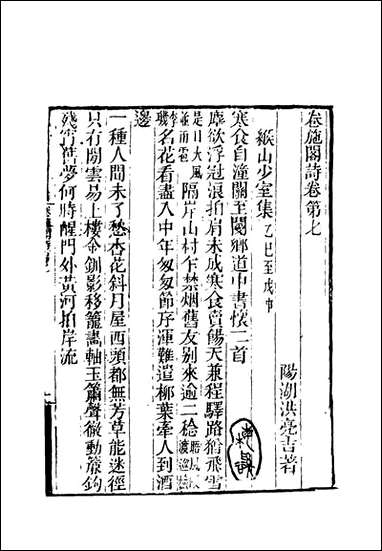 卷施閣詩卷第七
陽湖洪亮吉著
緱山少室集乙巳至戊申
寒食自潼關至閿鄉道中書懷二首
塵欲浮冠浪拍肩未成寒食賣餳天兼程驛路猶飛雪
是日大風並雨雹隔岸山村乍禁烟舊友別來逾二稔
名花看盡入中年匆匆節序渾難遣柳葉牽人到酒
邊
一種人間未了愁杏花斜月屋西頭都無芳草能迷徑
只有閒雲易上樓金釧影移籠畵軸玉簫聲徹動簾鉤
殘宵舊夢何時醒門外黃河拍岸流